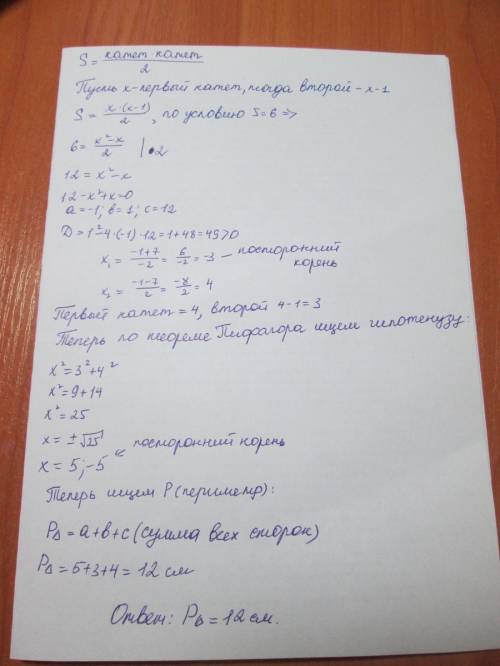 S = катет·катет / 2
Пусть x-первый катет, тогда второй - x-1
S = x·(x-1) / 2, по условию S=6 =>
6 = x²-x / 2 |•2
12 = x²-x
12-x²+x=0
a=-1; b=1; c=12
D = 1²-4·(-1)·12=1+48=49>0
x₁ = -1+7 / -2 = 6 / -2 = -3 — посторонний корень
x₂ = -1-7 / 2 = -8 / 2 = 4
Первый катет = 4, второй 4-1=3
Теперь по теореме Пифагора ищем гипотенузу:
x² = 3²+4²
x² = 9+14
x² = 25
x = ±√25
x = 5; -5 ← посторонний корень
Теперь ищем P (периметр):
P△ = a+b+c (сумма всех сторон)
P△ = 5+3+4 = 12 см
Ответ: P△ = 12 см.